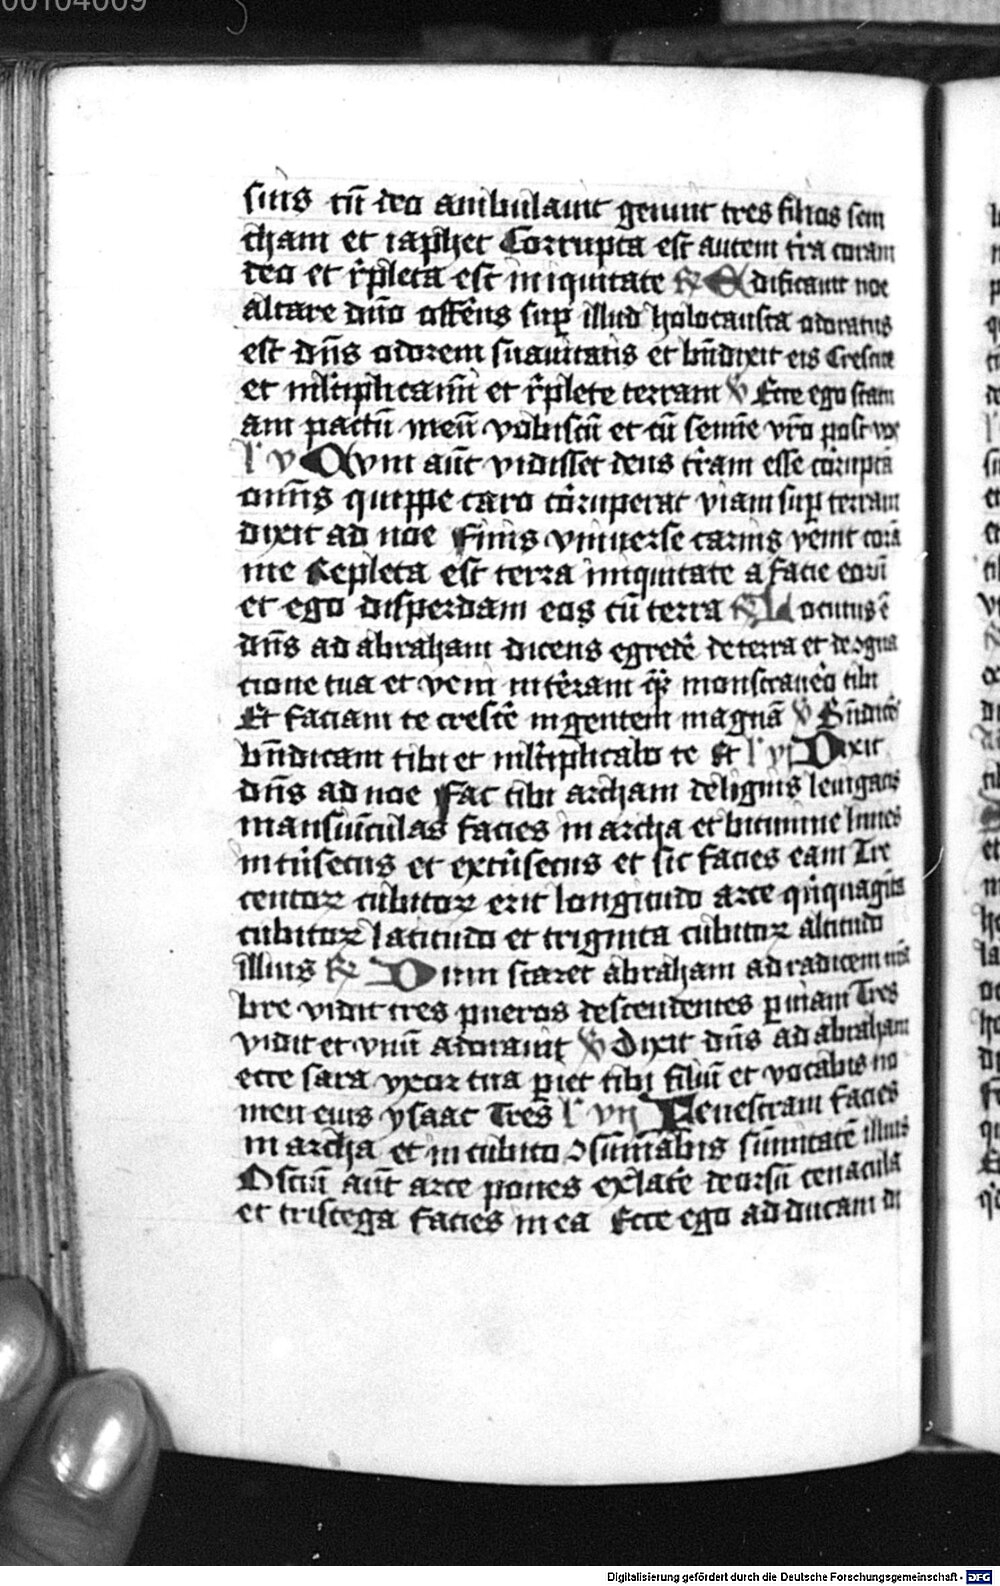 00104009
suis cū deo ambulauit genuit tres filios sem
cham et iaphet Corrupta est autem t̄ra coram
deo et r̄pleta est iniquitate ℟ Edificauit noe
altare dn̄o offerēs sup̱ illud holocausta odoratus
est dn̄s odorem suauitatis et bn̄dixit eis Crescite
et ml̄tiplicamī et r̄plete terram ℣ Ecce ego statu
am pactū meū vobiscū et cū semīe vr̄o post vos
l' v Cvm aūt vidisset deus t̄ram esse cōruptā
omīs quippe caro cōruperat viam sup̱ terram
dixit ad noe Finis vniuerse carnis venit corā
me Repleta est terra iniquitate a facie eorū
et ego disperdam eos cū terra ℟ Locutus ē
dn̄s ad abraham dicens egredē de terra et de ꝯgna
cione tua et veni in terram qū monstrauero tibi
Et faciam te crescē in gentem magnā ℣ Bn̄dicēs
bn̄dicam tibi et ml̄tiplicabo te Et l' vj Dixit
dn̄s ad noe Fac tibi archam de lignis leuigatis
mansiūculas facies in archa et bitumine linies
intīsecus et extīsecus et sic facies eam Tre
centoꝝ cubitoꝝ erit longitudo arce qn̄quagīta
cubitoꝝ latitudo et triginta cubitoꝝ altitudo
illius ℟ Dum staret abraham ad radicem mā
bre vidit tres pueros descendentes p̱ uiam Tres
vidit et vnū adorauit ℣ Dixit dn̄s ad abraham
ecce sara vxor tua pīet tibi filiū et vocabis no
men eius ysaac Tres l' vij Fenestram facies
in archa et in cubito ꝯsūmabis sūmitatē illius
Ostiū aūt arce pones ex latē deorsū cenacula
et tristega facies in ea Ecce ego adducam di
Digitalisierung gefördert durch die Deutsche Forschungsgemeinschaft - DFG